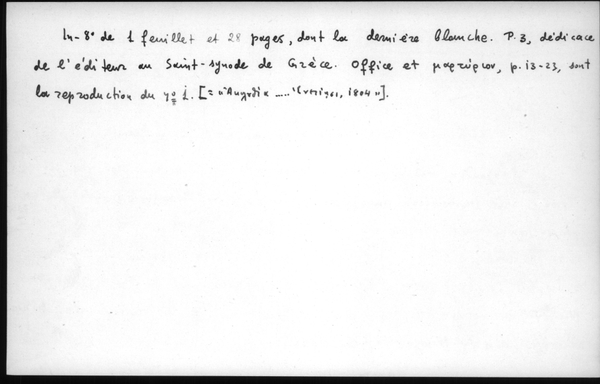 In-8° de 1 feuillet et 28 pages, dont la dernière blanche. P. 3, dédicace
de l'éditeur au Saint-synode de Grèce. Office et μαρτύριον, p. 13-23, sont
la reproduction du nº 1. [= « ..... 1804 »].